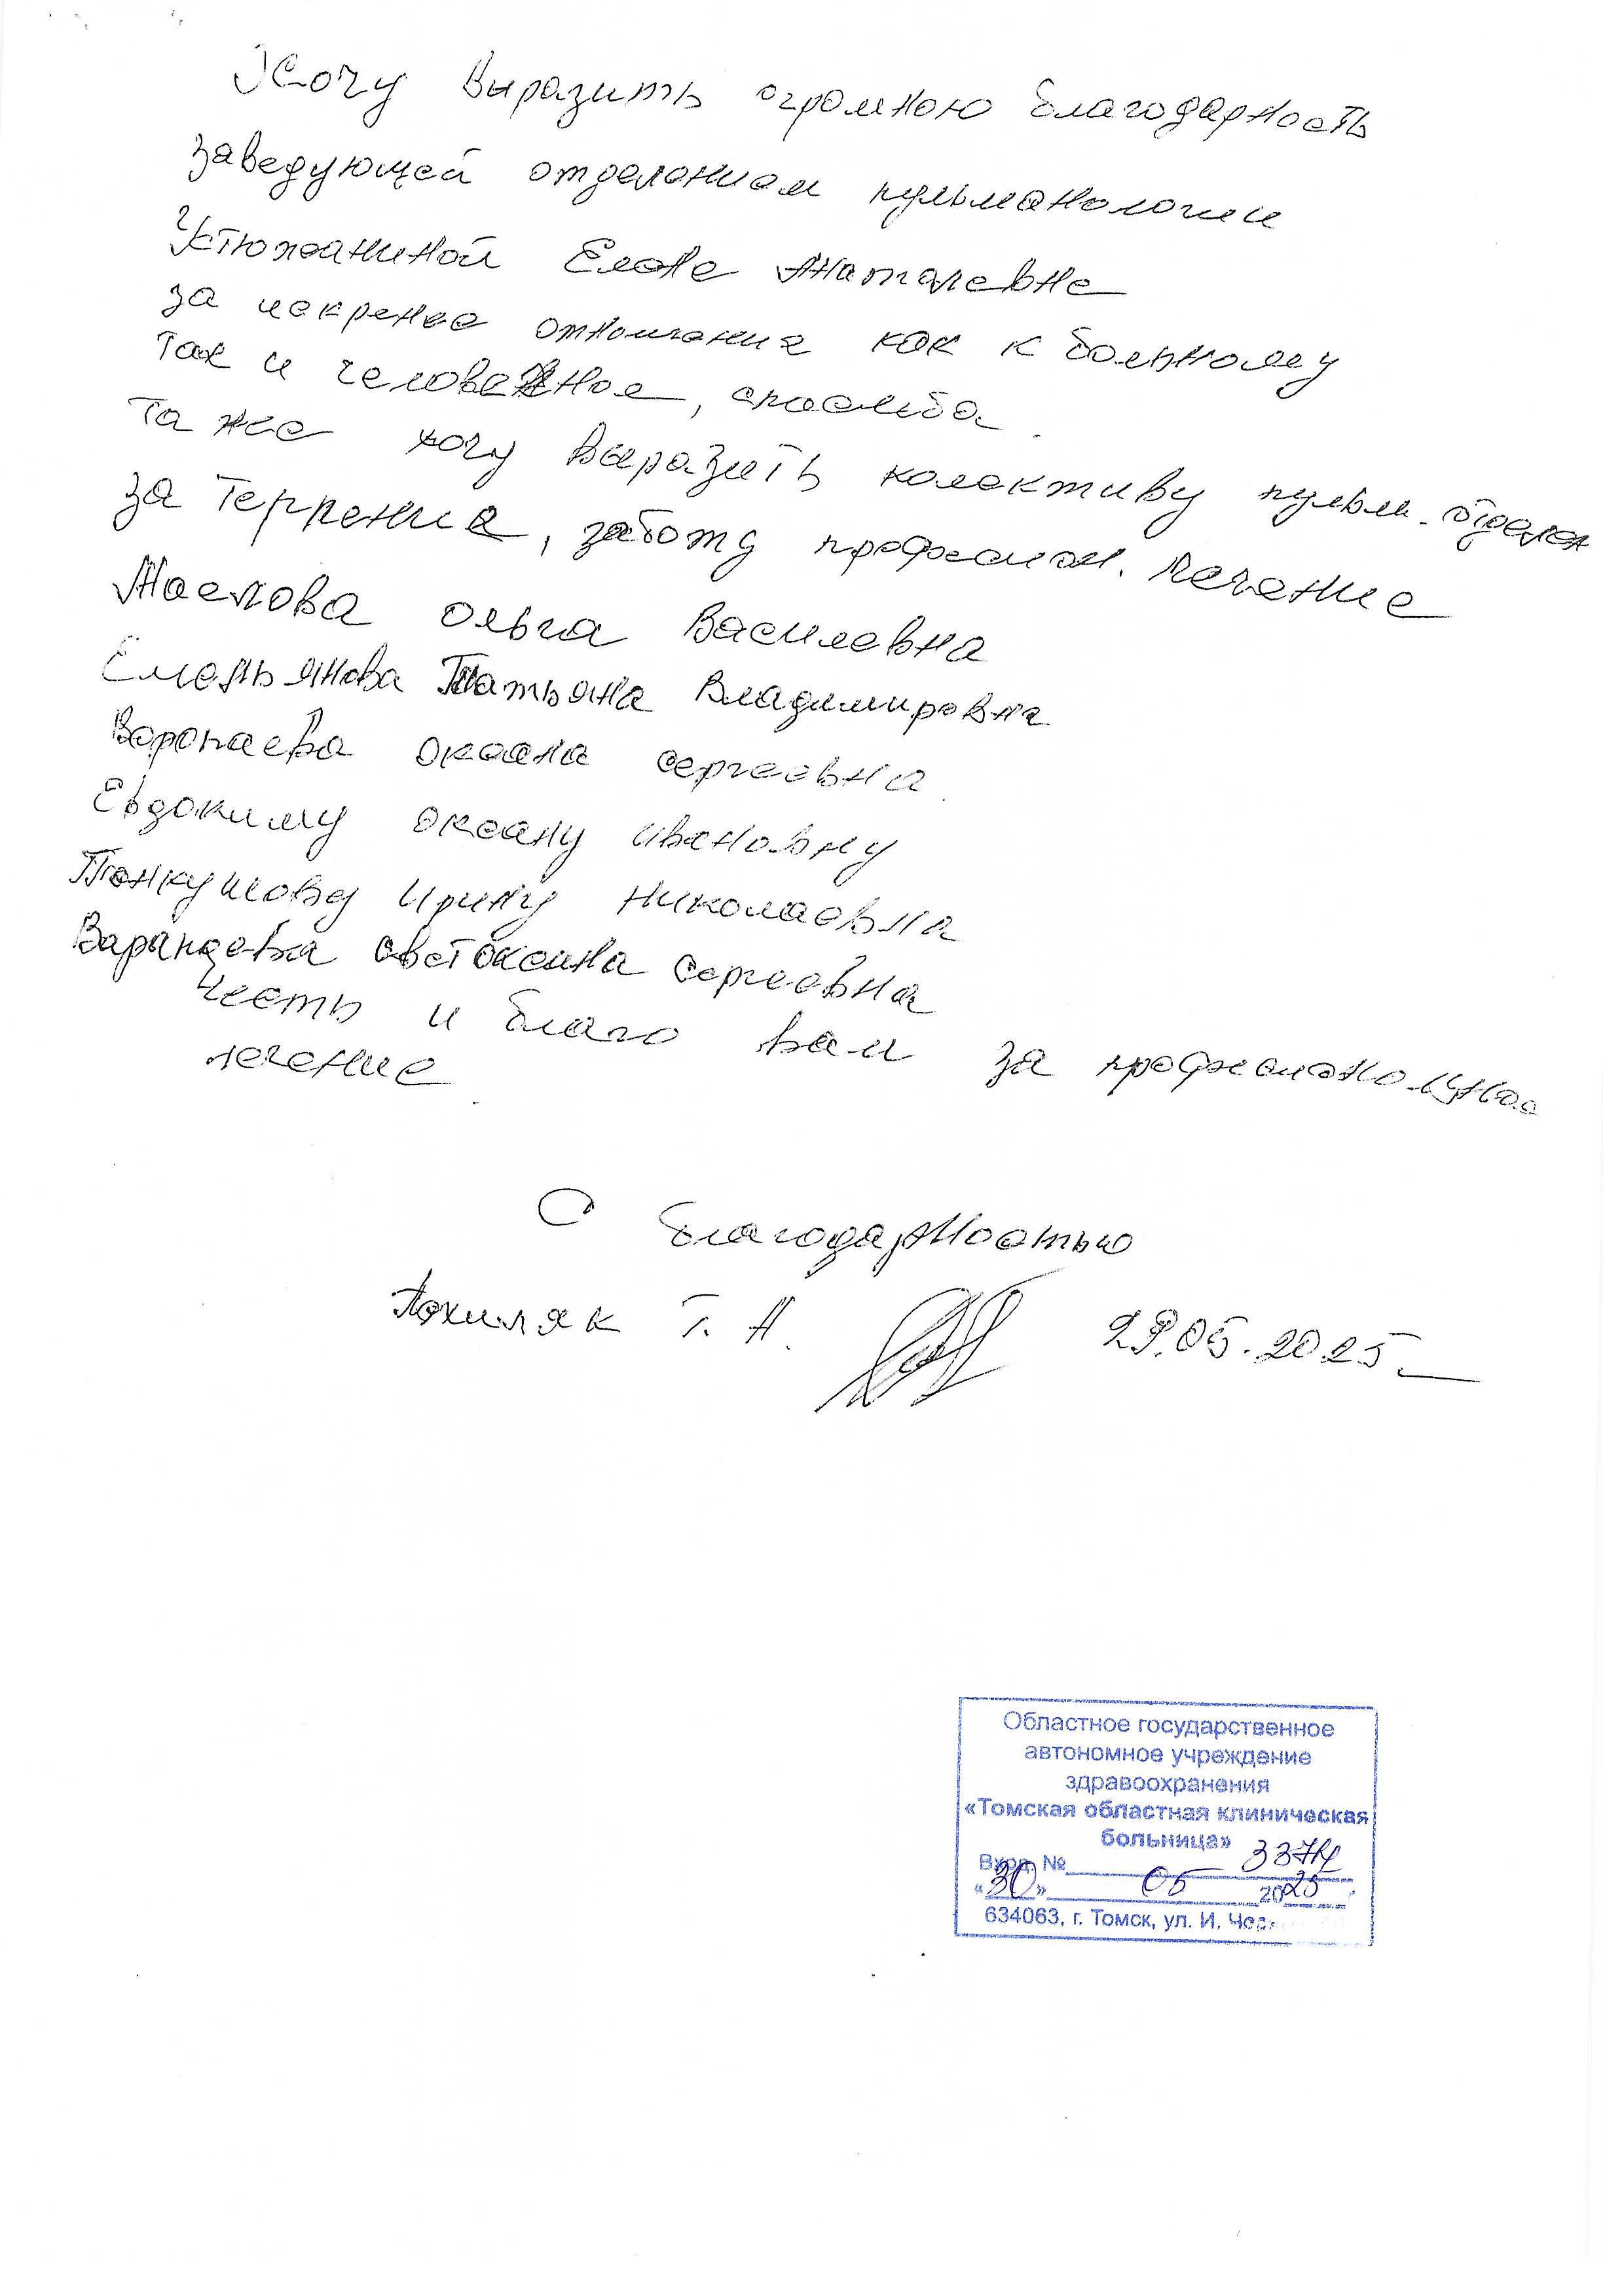 Хочу выразить огромною благодарность
заведующей отделением пульманологии
Устюжаниной Елене Анаталевне
за искренее отношение как к больному
так и человечное, спасиба.
Та же хочу выразить колективу пульм. отделен
за терпение, заботу професион. лечение
Маслова Ольга Василевна
Емельянова Татьяна Владимировна
Воропаева Оксана Сергеевна
Евдокиму Оксану Ивановну
Панкушову Ирину Николаевна
Варанцева Светоксина Сергеевна
Честь и благо вам за професиональное
лечение
С благодарностью
Похиляк Т. А. 29.05.2025
Областное государственное
автономное учреждение
здравоохранения
«Томская областная клиническая
больница»
Вход. № 3374
«30» 05 2025
634063, г. Томск, ул. И. Чер